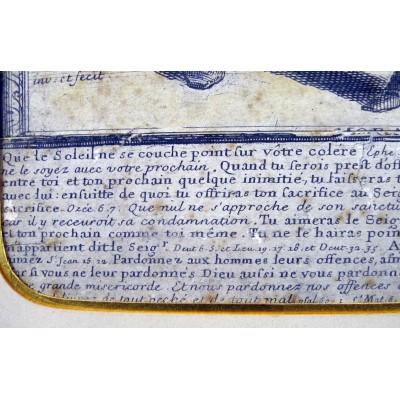 inv. et fecit
Que le Soleil ne se couche point sur vôtre colere (Ephe
ne le soyez avec votre prochain. Quand tu serois prest d'off
entre toi et ton prochain quelque inimitié, tu laisseras t
avec lui: ensuitte de quoi tu offriras ton sacrifice au Seig
sacrifice. Ozée 6.7. Que nul ne s'approche de son sanctu
car il y receuroit sa condamnation. Tu aimeras le Seig
t ton prochain comme toi même. Tu ne le hairas poin
m'appartient dit le Seigr. Deut 6.5. et Leu 19.17.18. et Deut 32.35. A
aimez St Jean 15.12. Pardonnez aux hommes leurs offences, afin
si vous ne leur pardonnés Dieu aussi ne vous pardonn
grande misericorde. Et nous pardonnez nos offences
de tout peché et de tout mal